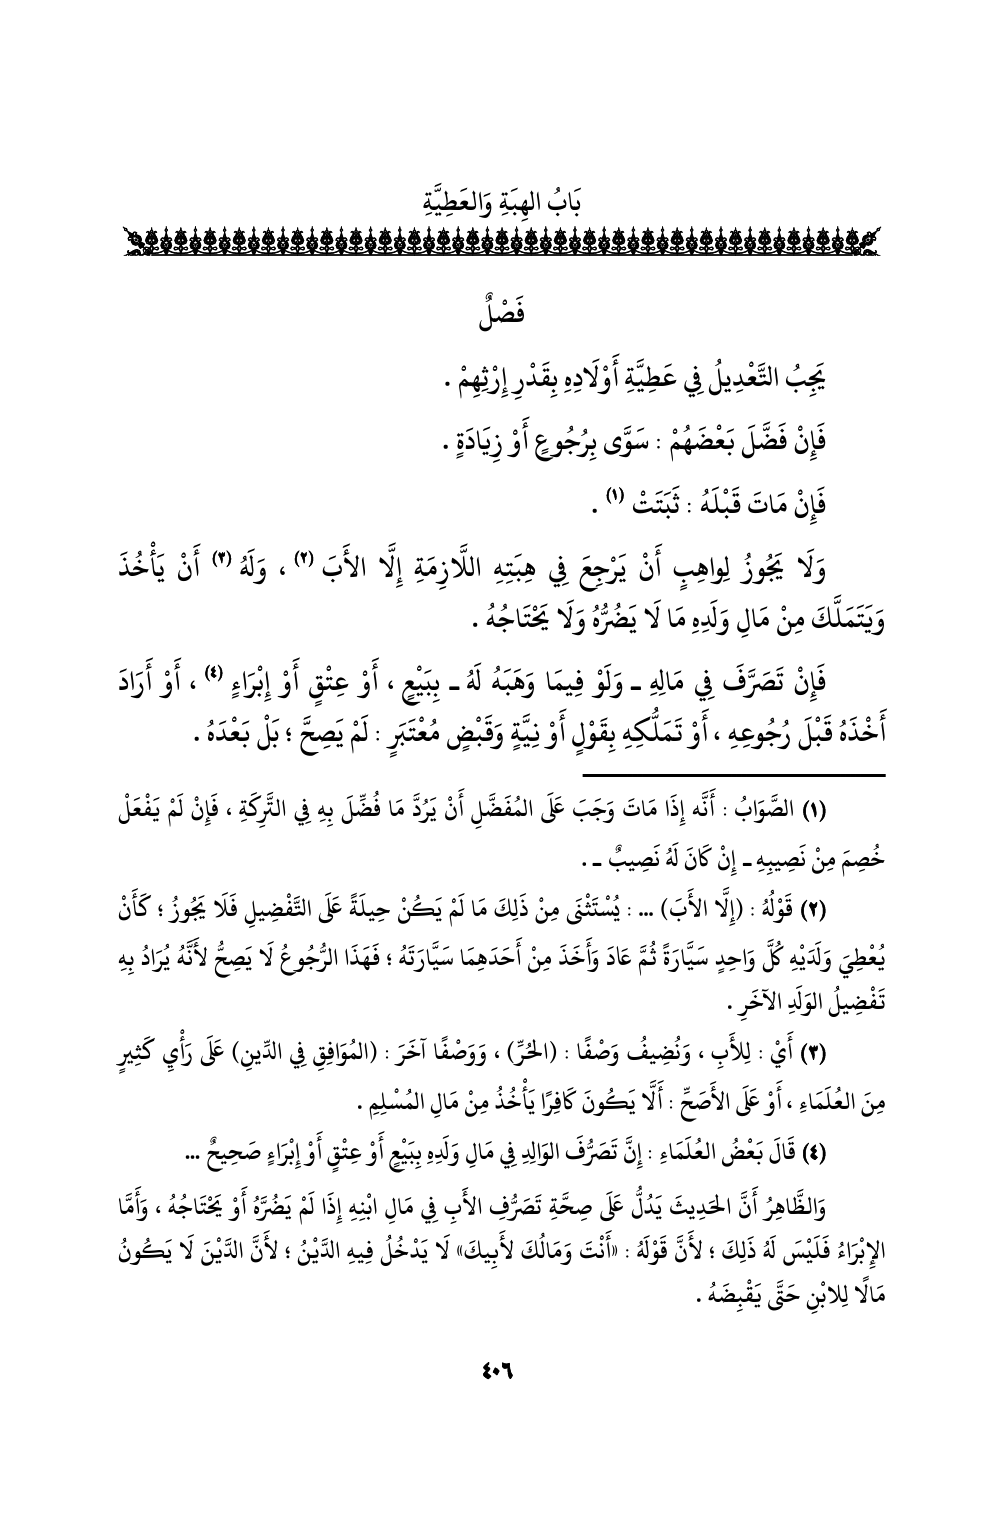 بَابُ الهِبَةِ وَالعَطِيَّةِ
فَصْلٌ
يَجِبُ التَّعْدِيلُ فِي عَطِيَّةِ أَوْلَادِهِ بِقَدْرِ إِرْثِهِمْ .
فَإِنْ فَضَّلَ بَعْضَهُمْ : سَوَّى بِرُجُوعٍ أَوْ زِيَادَةٍ .
فَإِنْ مَاتَ قَبْلَهُ : ثَبَتَتْ (١) .
وَلَا يَجُوزُ لِواهِبٍ أَنْ يَرْجِعَ فِي هِبَتِهِ اللَّازِمَةِ إِلَّا الأَبَ (٢) ، وَلَهُ (٣) أَنْ يَأْخُذَ
وَيَتَمَلَّكَ مِنْ مَالِ وَلَدِهِ مَا لَا يَضُرُّهُ وَلَا يَحْتَاجُهُ .
فَإِنْ تَصَرَّفَ فِي مَالِهِ ـ وَلَوْ فِيمَا وَهَبَهُ لَهُ ـ بِبَيْعٍ ، أَوْ عِتْقٍ أَوْ إِبْرَاءٍ (٤) ، أَوْ أَرَادَ
أَخْذَهُ قَبْلَ رُجُوعِهِ ، أَوْ تَمَلُّكِهِ بِقَوْلٍ أَوْ نِيَّةٍ وَقَبْضٍ مُعْتَبَرٍ : لَمْ يَصِحَّ ؛ بَلْ بَعْدَهُ .
(١) الصَّوَابُ : أَنَّه إِذَا مَاتَ وَجَبَ عَلَى المُفَضَّلِ أَنْ يَرُدَّ مَا فُضِّلَ بِهِ فِي التَّرِكَةِ ، فَإِنْ لَمْ يَفْعَلْ
خُصِمَ مِنْ نَصِيبِهِ ـ إِنْ كَانَ لَهُ نَصِيبٌ ـ .
(٢) قَوْلُهُ : (إِلَّا الأَبَ) ... : يُسْتَثْنَى مِنْ ذَلِكَ مَا لَمْ يَكُنْ حِيلَةً عَلَى التَّفْضِيلِ فَلَا يَجُوزُ ؛ كَأَنْ
يُعْطِيَ وَلَدَيْهِ كُلَّ وَاحِدٍ سَيَّارَةً ثُمَّ عَادَ وَأَخَذَ مِنْ أَحَدَهِمَا سَيَّارَتَهُ ؛ فَهَذَا الرُّجُوعُ لَا يَصِحُّ لأَنَّهُ يُرَادُ بِهِ
تَفْضِيلُ الوَلَدِ الآخَرِ .
(٣) أَيْ : لِلأَبِ ، وَنُضِيفُ وَصْفًا : (الحُرِّ) ، وَوَصْفًا آخَرَ : (المُوَافِقِ فِي الدِّينِ) عَلَى رَأْيِ كَثِيرٍ
مِنَ العُلَمَاءِ ، أَوْ عَلَى الأَصَحِّ : أَلَّا يَكُونَ كَافِرًا يَأْخُذُ مِنْ مَالِ المُسْلِمِ .
(٤) قَالَ بَعْضُ العُلَمَاءِ : إِنَّ تَصَرُّفَ الوَالِدِ فِي مَالِ وَلَدِهِ بِبَيْعٍ أَوْ عِتْقٍ أَوْ إِبْرَاءٍ صَحِيحٌ ...
وَالظَّاهِرُ أَنَّ الحَدِيثَ يَدُلُّ عَلَى صِحَّةِ تَصَرُّفِ الأَبِ فِي مَالِ ابْنِهِ إِذَا لَمْ يَضُرَّهُ أَوْ يَحْتَاجُهُ ، وَأَمَّا
الإِبْرَاءُ فَلَيْسَ لَهُ ذَلِكَ ؛ لأَنَّ قَوْلَهُ : «أَنْتَ وَمَالُكَ لأَبِيكَ» لَا يَدْخُلُ فِيهِ الدَّيْنُ ؛ لأَنَّ الدَّيْنَ لَا يَكُونُ
مَالًا لِلابْنِ حَتَّى يَقْبِضَهُ .
٤٠٦